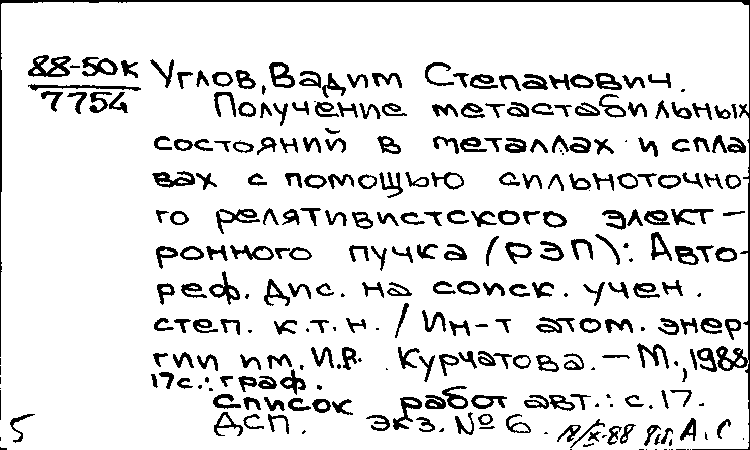 88-50к Углов, Вадим Степанович.
7754 Получение метастабильных
состояний в металлах и спла
вах с помощью сильноточно-
го релятивистского элект-
ронного пучка (РЭП): Авто-
реф. дис. на соиск. учен.
степ. к.т.н. / Ин-т атом. энер-
гии им. И.В. Курчатова. — М., 1988.
17с.: граф.
Список работ авт.: с.17.
5 ДСП. экз. № 6. /X-88 А.С